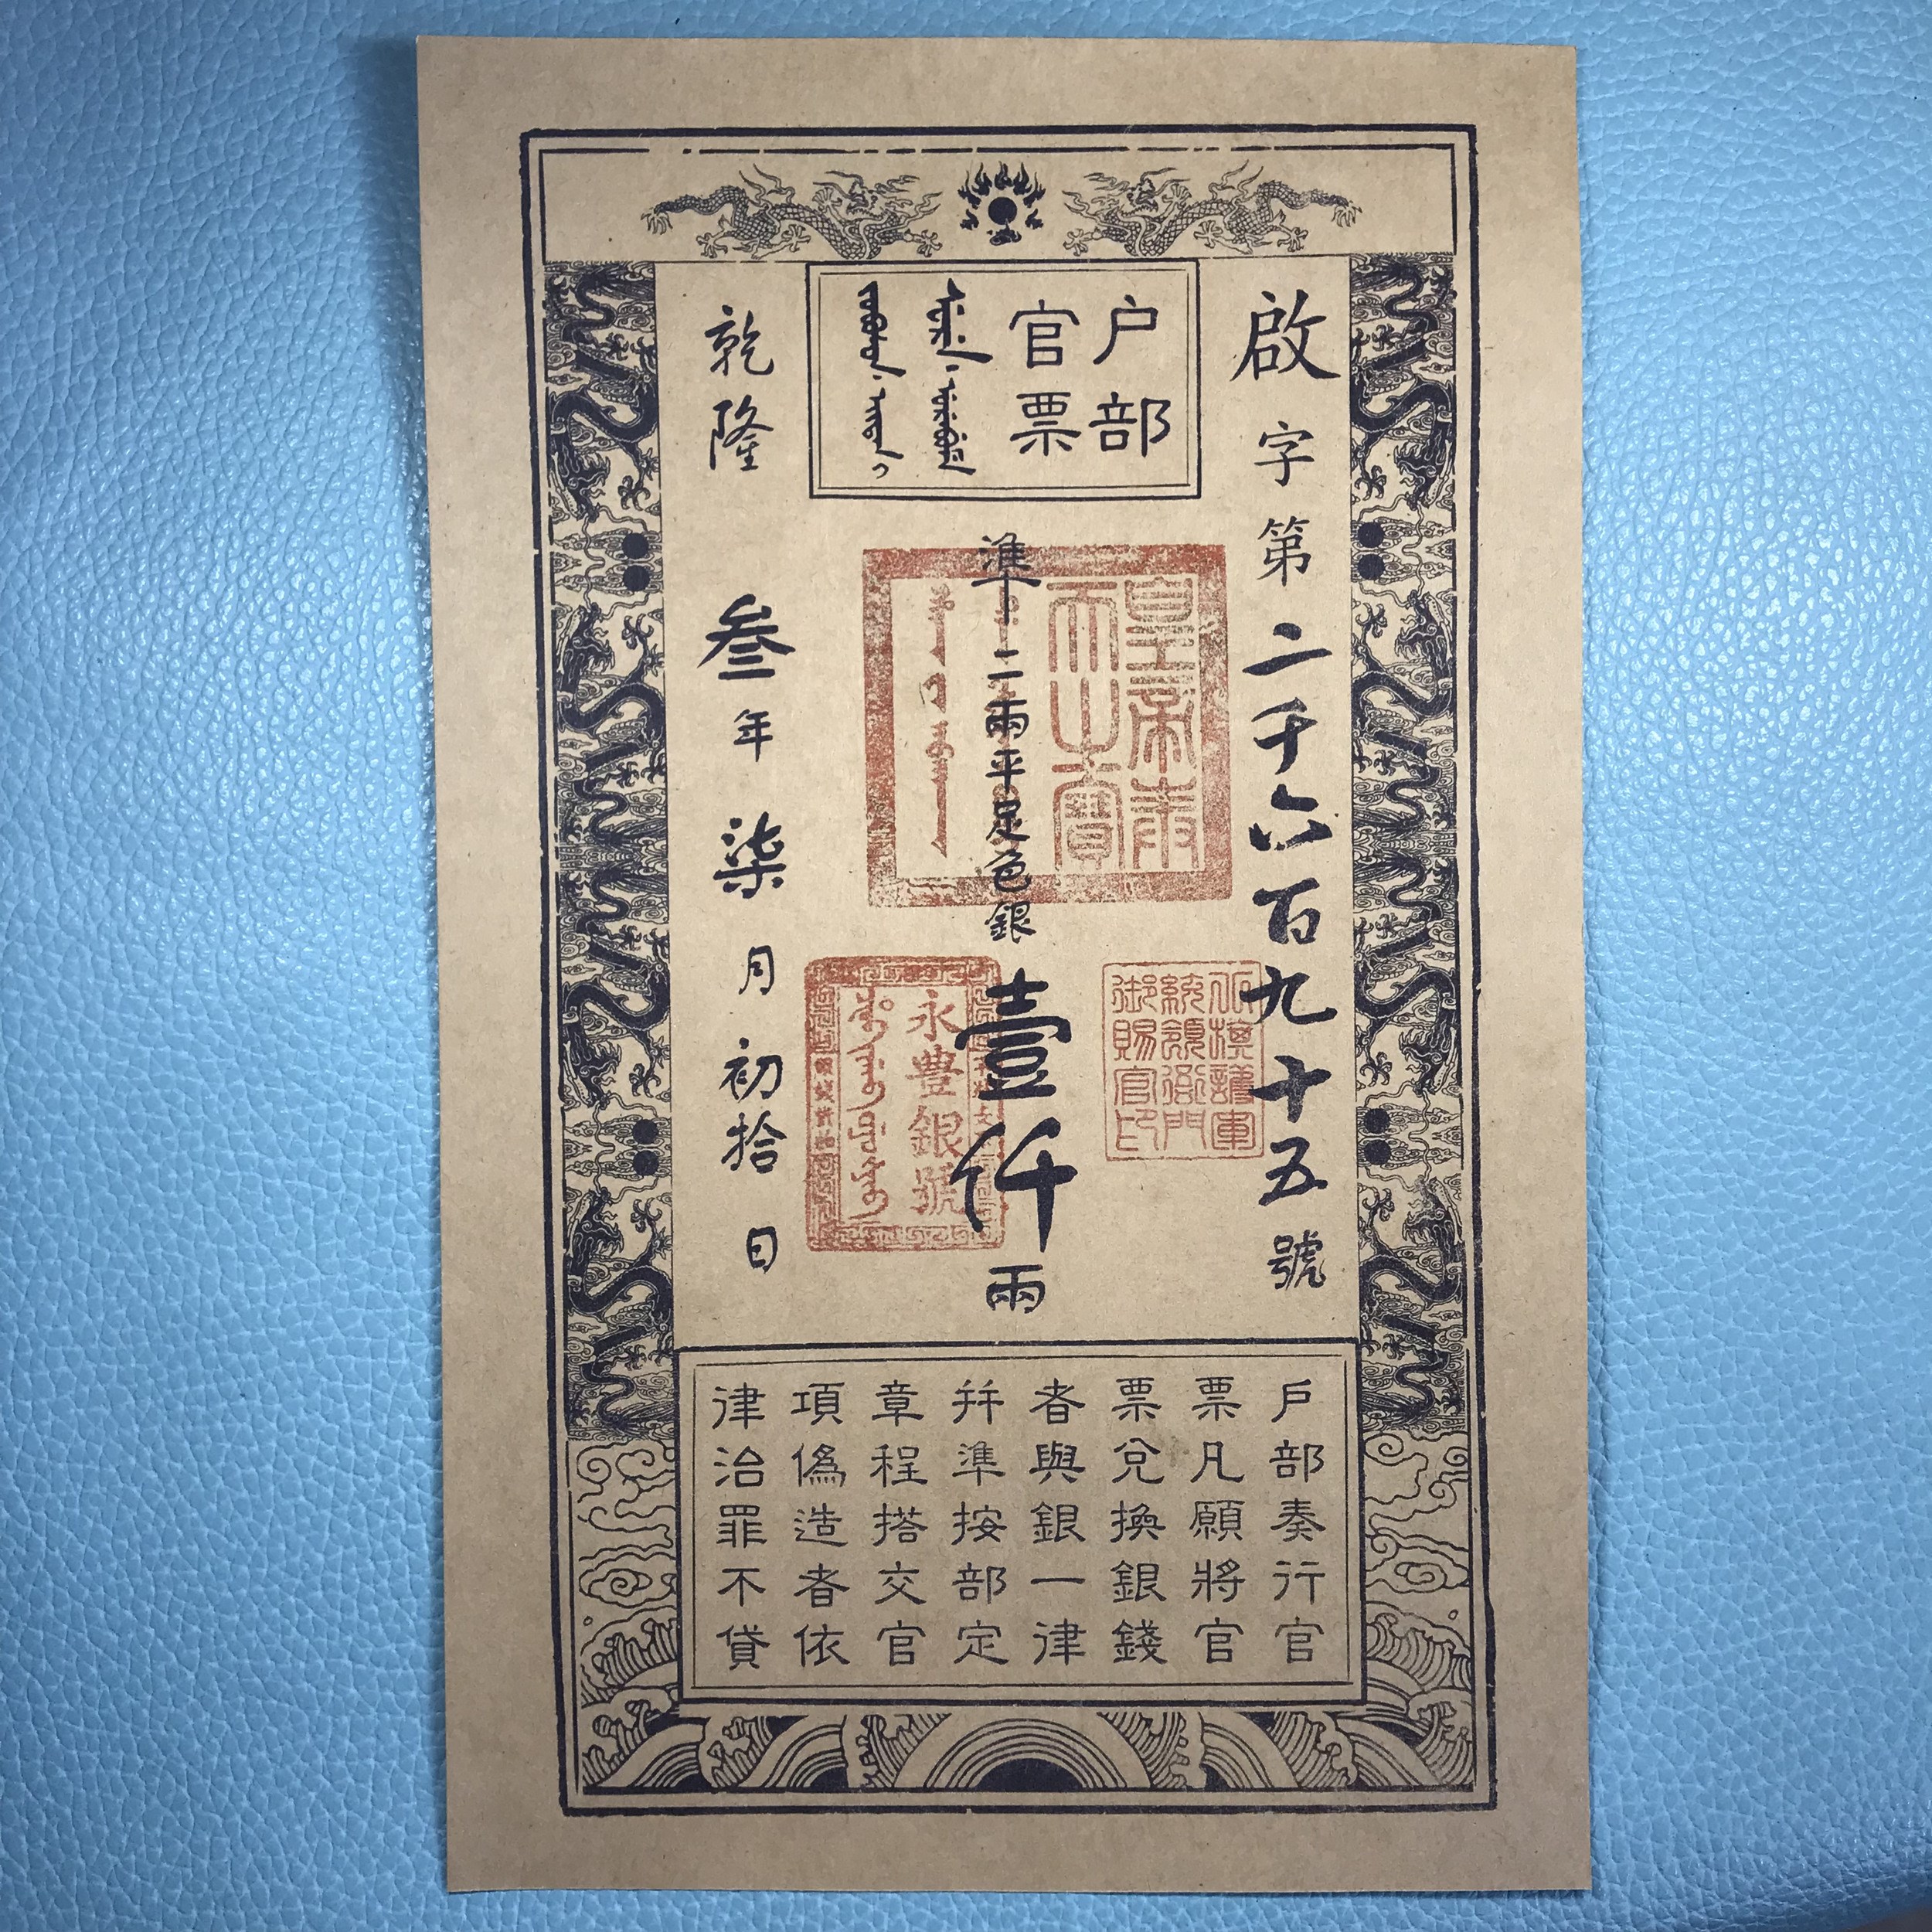 啟字第二千六百九十五號
户部
官票
準二兩平足色銀壹仟兩
皇帝奉
天之寶
御賜官印
永豊銀號
乾隆叁年柒月初拾日
戶部奏行官
票凡願將官
票兌換銀錢
者與銀一律
幷準按部定
章程搭交官
項僞造者依
律治罪不貸